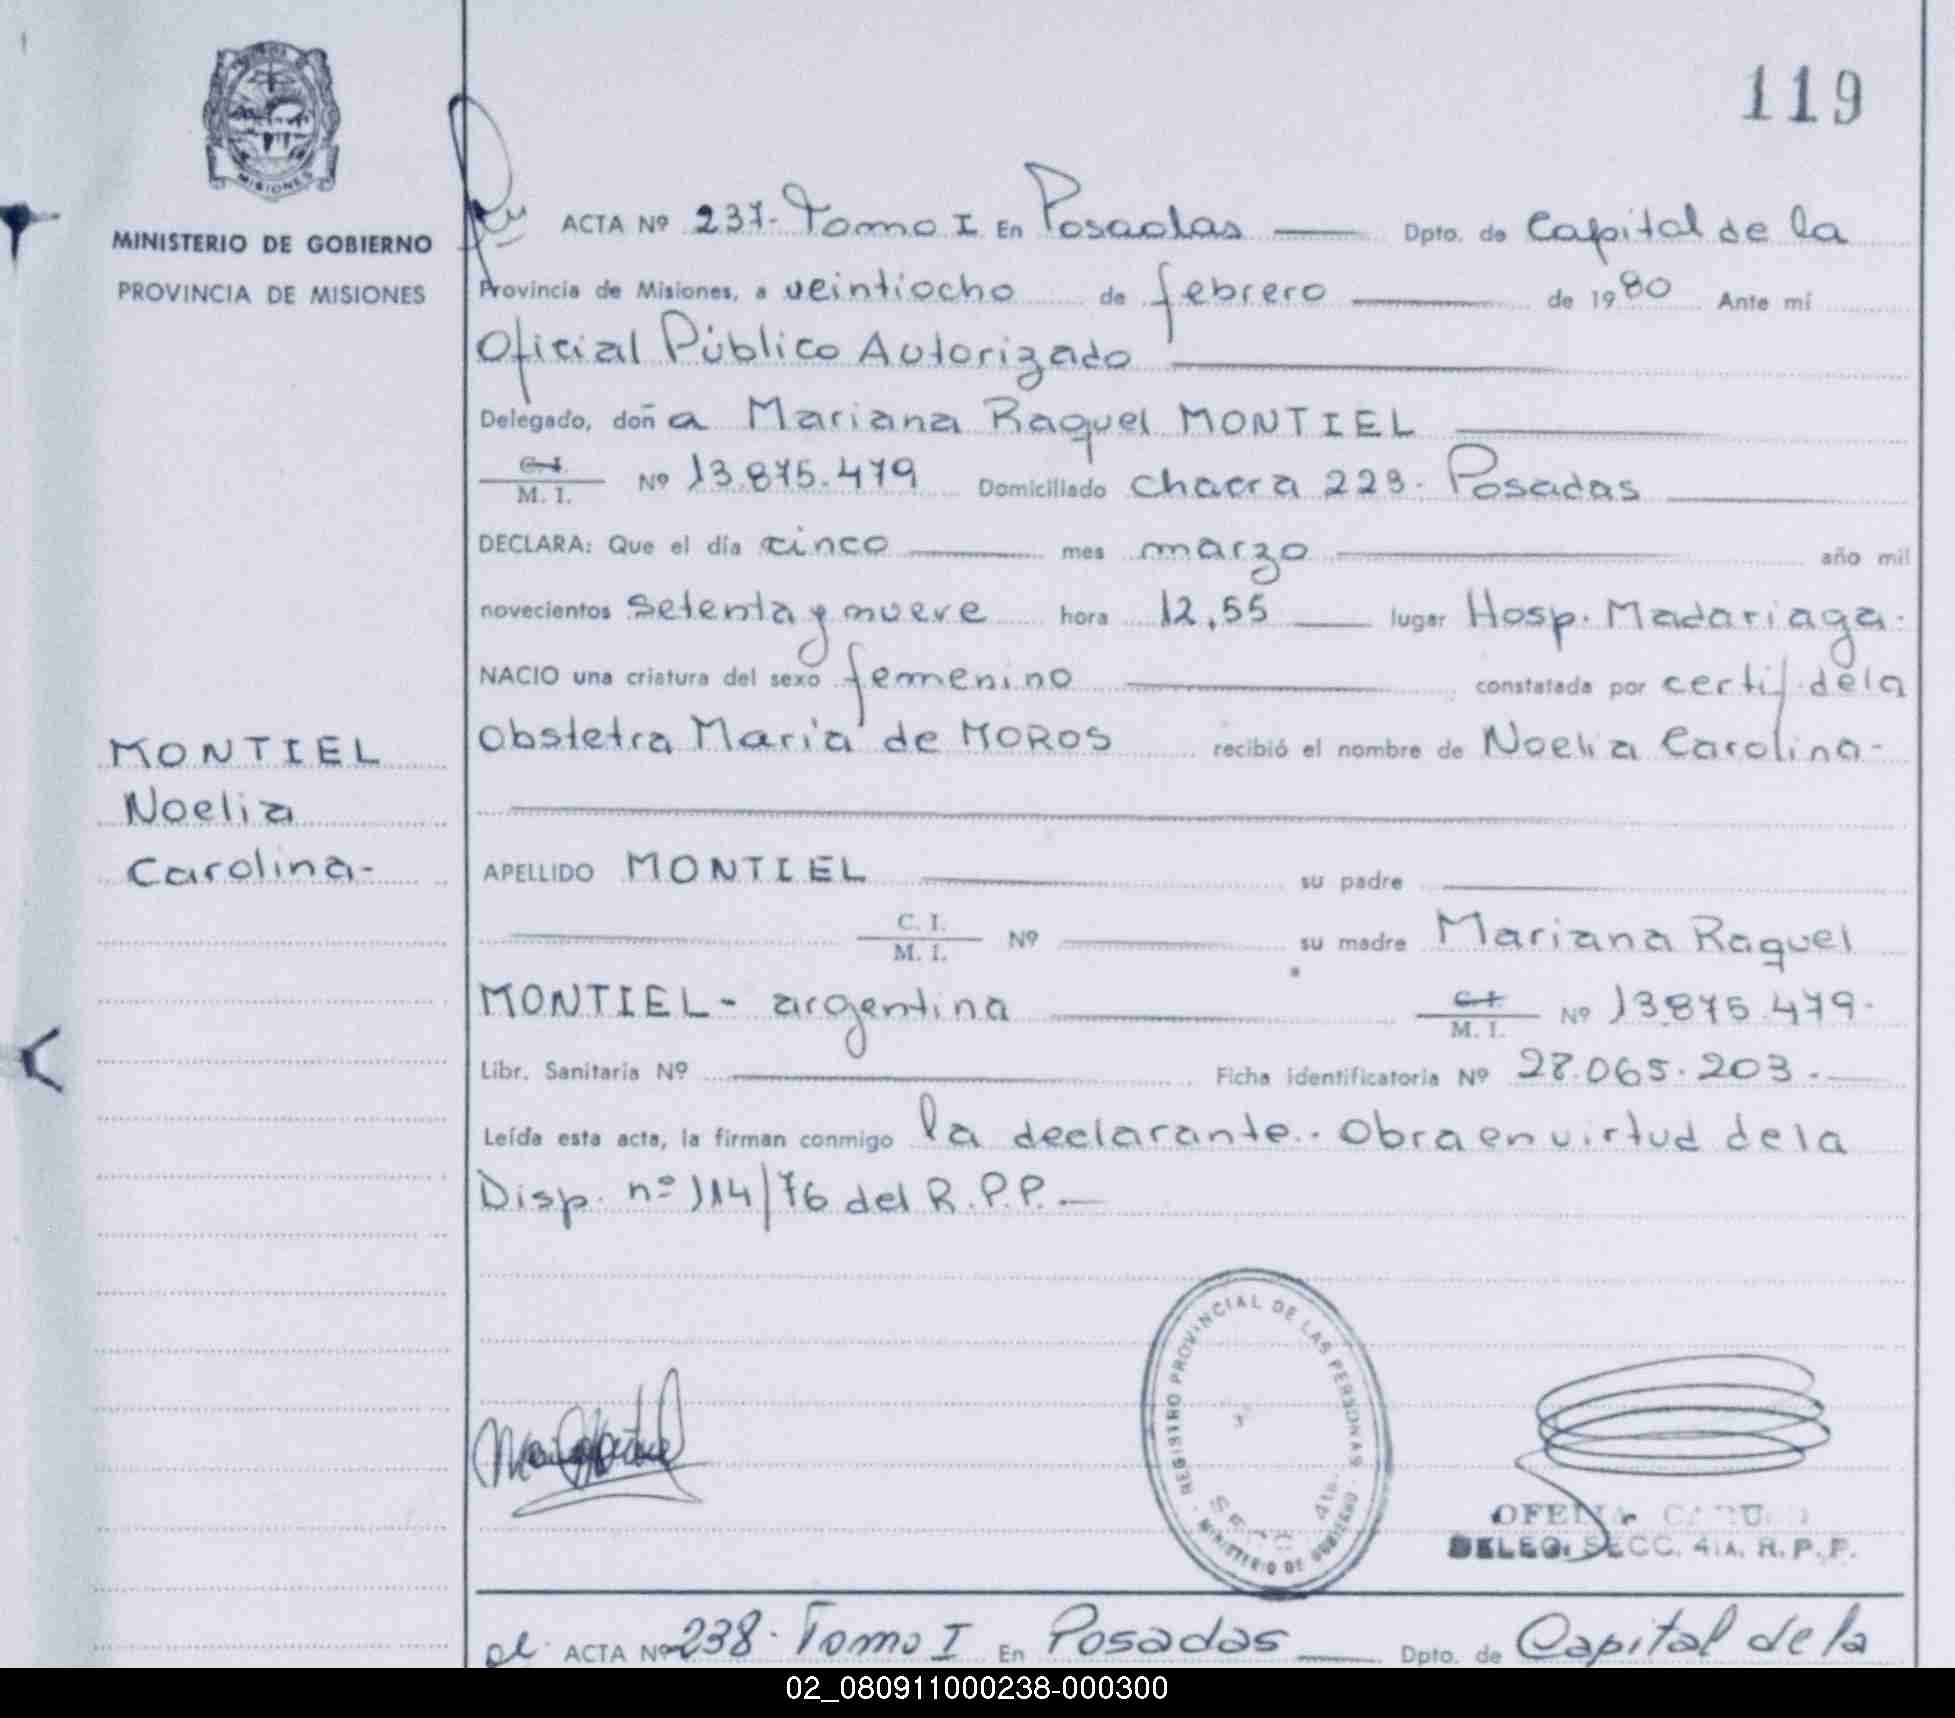 119
MISIONES
MINISTERIO DE GOBIERNO
PROVINCIA DE MISIONES
MONTIEL
Noelia
Carolina-
ACTA Nº 237- Tomo I En Posadas Dpto. de Capital de la
Provincia de Misiones, a veintiocho de febrero de 1980 Ante mí
Oficial Público Autorizado
Delegado, doña Mariana Raquel MONTIEL
C. I.
M. I. Nº 13.875.479 Domiciliado chacra 223. Posadas
DECLARA: Que el día cinco mes marzo año mil
novecientos setenta y nueve hora 12,55 lugar Hosp. Madariaga.
NACIO una criatura del sexo femenino constatada por certif. de la
Obstetra María de MOROS recibió el nombre de Noelia Carolina-
APELLIDO MONTIEL su padre
C. I.
M. I. Nº su madre Mariana Raquel
MONTIEL- argentina C. I.
M. I. Nº 13.875.479.
Libr. Sanitaria Nº Ficha identificatoria Nº 27.065.203.-
Leída esta acta, la firman conmigo la declarante.. Obra en virtud de la
Disp. nº 114/76 del R.P.P.-
REGISTRO PROVINCIAL DE LAS PERSONAS
SECC. 4ta.
MINISTERIO DE GOBIERNO
DELEG. SECC. 4TA. R. P. P.
ACTA Nº 238. Tomo I En Posadas Dpto. de Capital de la
02_080911000238-000300